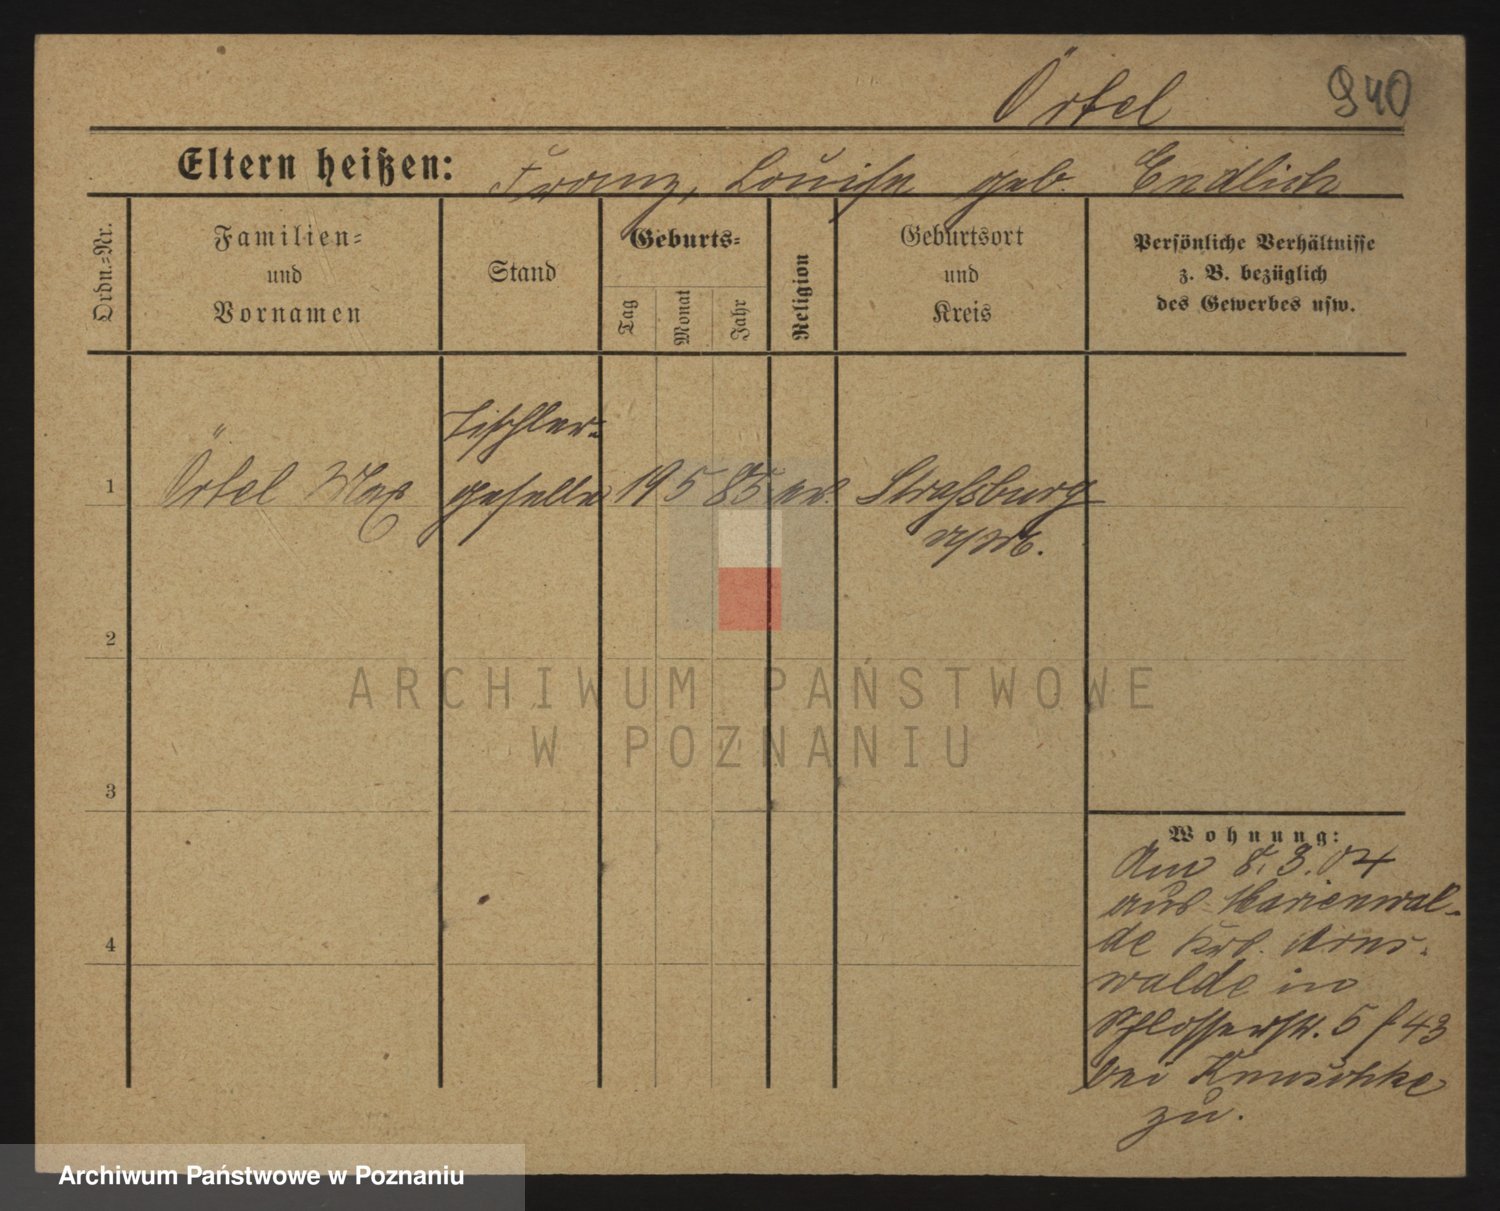 Örtel
940
Eltern heißen: Franz, Louise geb. Endlich
Ordn.-Nr.
Familien-
und
Vornamen
Stand
Geburts-
Tag
Monat
Jahr
Religion
Geburtsort
und
Kreis
Persönliche Verhältnisse
z. B. bezüglich
des Gewerbes usw.
Tischler-
1 Örtel Max geselle 19 5 85 ev. Straßburg
2
3
4
Wohnung:
Am 8.3.04
aus Marienwal-
de Krs. Arns-
walde in
Schlosserstr. 5 43
bei
zu.
ARCHIWUM PAŃSTWOWE
W POZNANIU
Archiwum Państwowe w Poznaniu